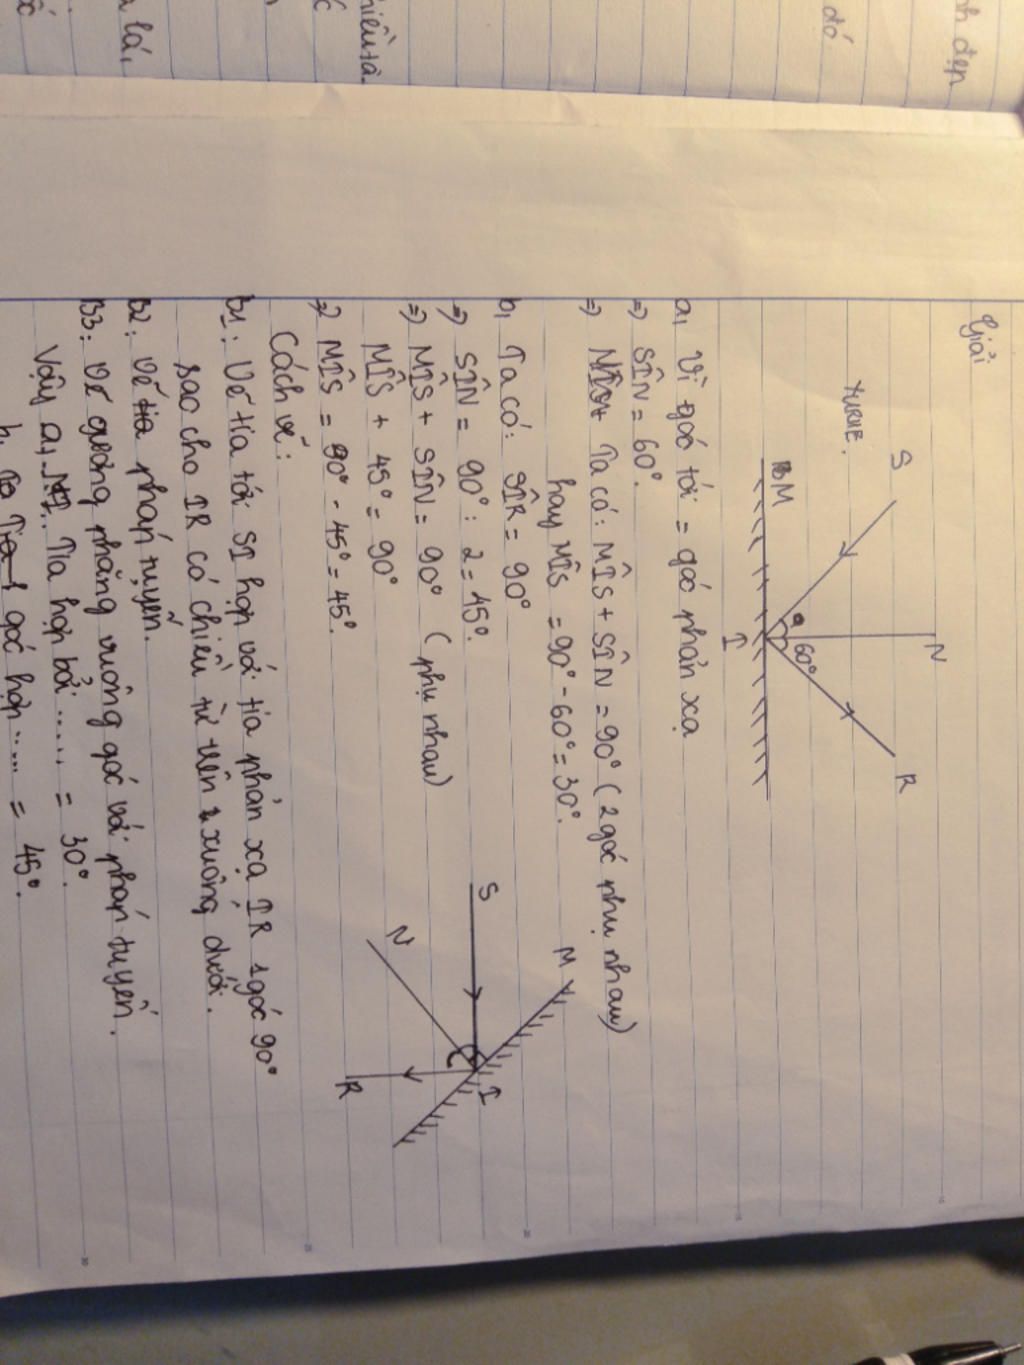 nh đẹp
đó
hiều tà.
c
a lá,
Giải:
YURUE.
S
N
R
M
60°
I
a, Vì góc tới = góc phản xạ
=) SÎN = 60°.
=) Ta có: MÎS + SÎN = 90° (2 góc phụ nhau)
hay MÎS = 90° - 60° = 30°.
b, Ta có: SÎR = 90°
=) SÎN = 90° : 2 = 45°.
=) MÎS + SÎN = 90° (phụ nhau)
MÎS + 45° = 90°
=) MÎS = 90° - 45° = 45°.
S
M
N
I
R
Cách vẽ:
B1: Vẽ tia tới SI hợp với tia phản xạ IR 1 góc 90°
sao cho IR có chiều từ trên xuống dưới.
B2: Vẽ tia pháp tuyến.
B3: Vẽ gương phẳng vuông góc với pháp tuyến.
Vậy a, Tia hợp bởi ..... = 30°.
b, Tia góc hợp .... = 45°.